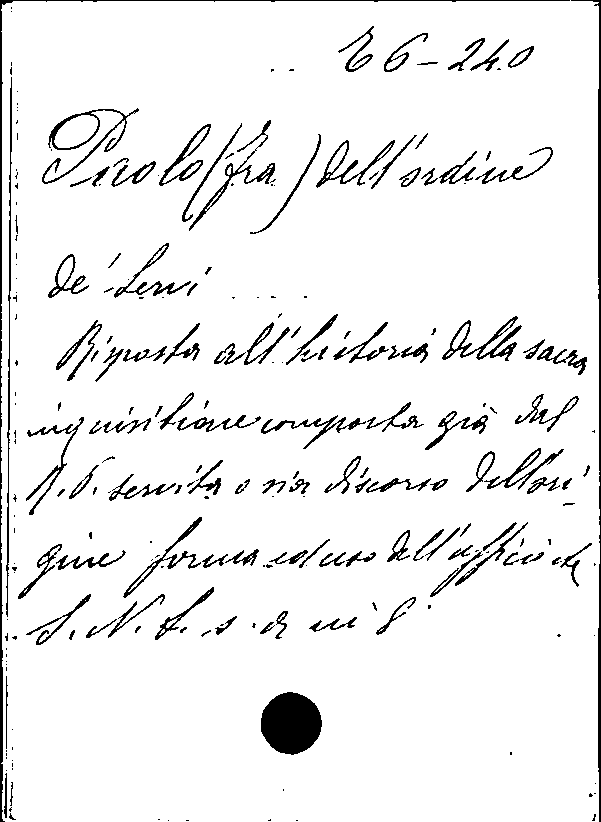 E6-240
Paolo (Fra) dell'ordine
de' Servi
Risposta all'historia della sacra
inquisitione composta già dal
R. P. servita o sia discorso dell'ori-
gine forma ed uso dell'ufficio
S. N. t. s. a in 8.